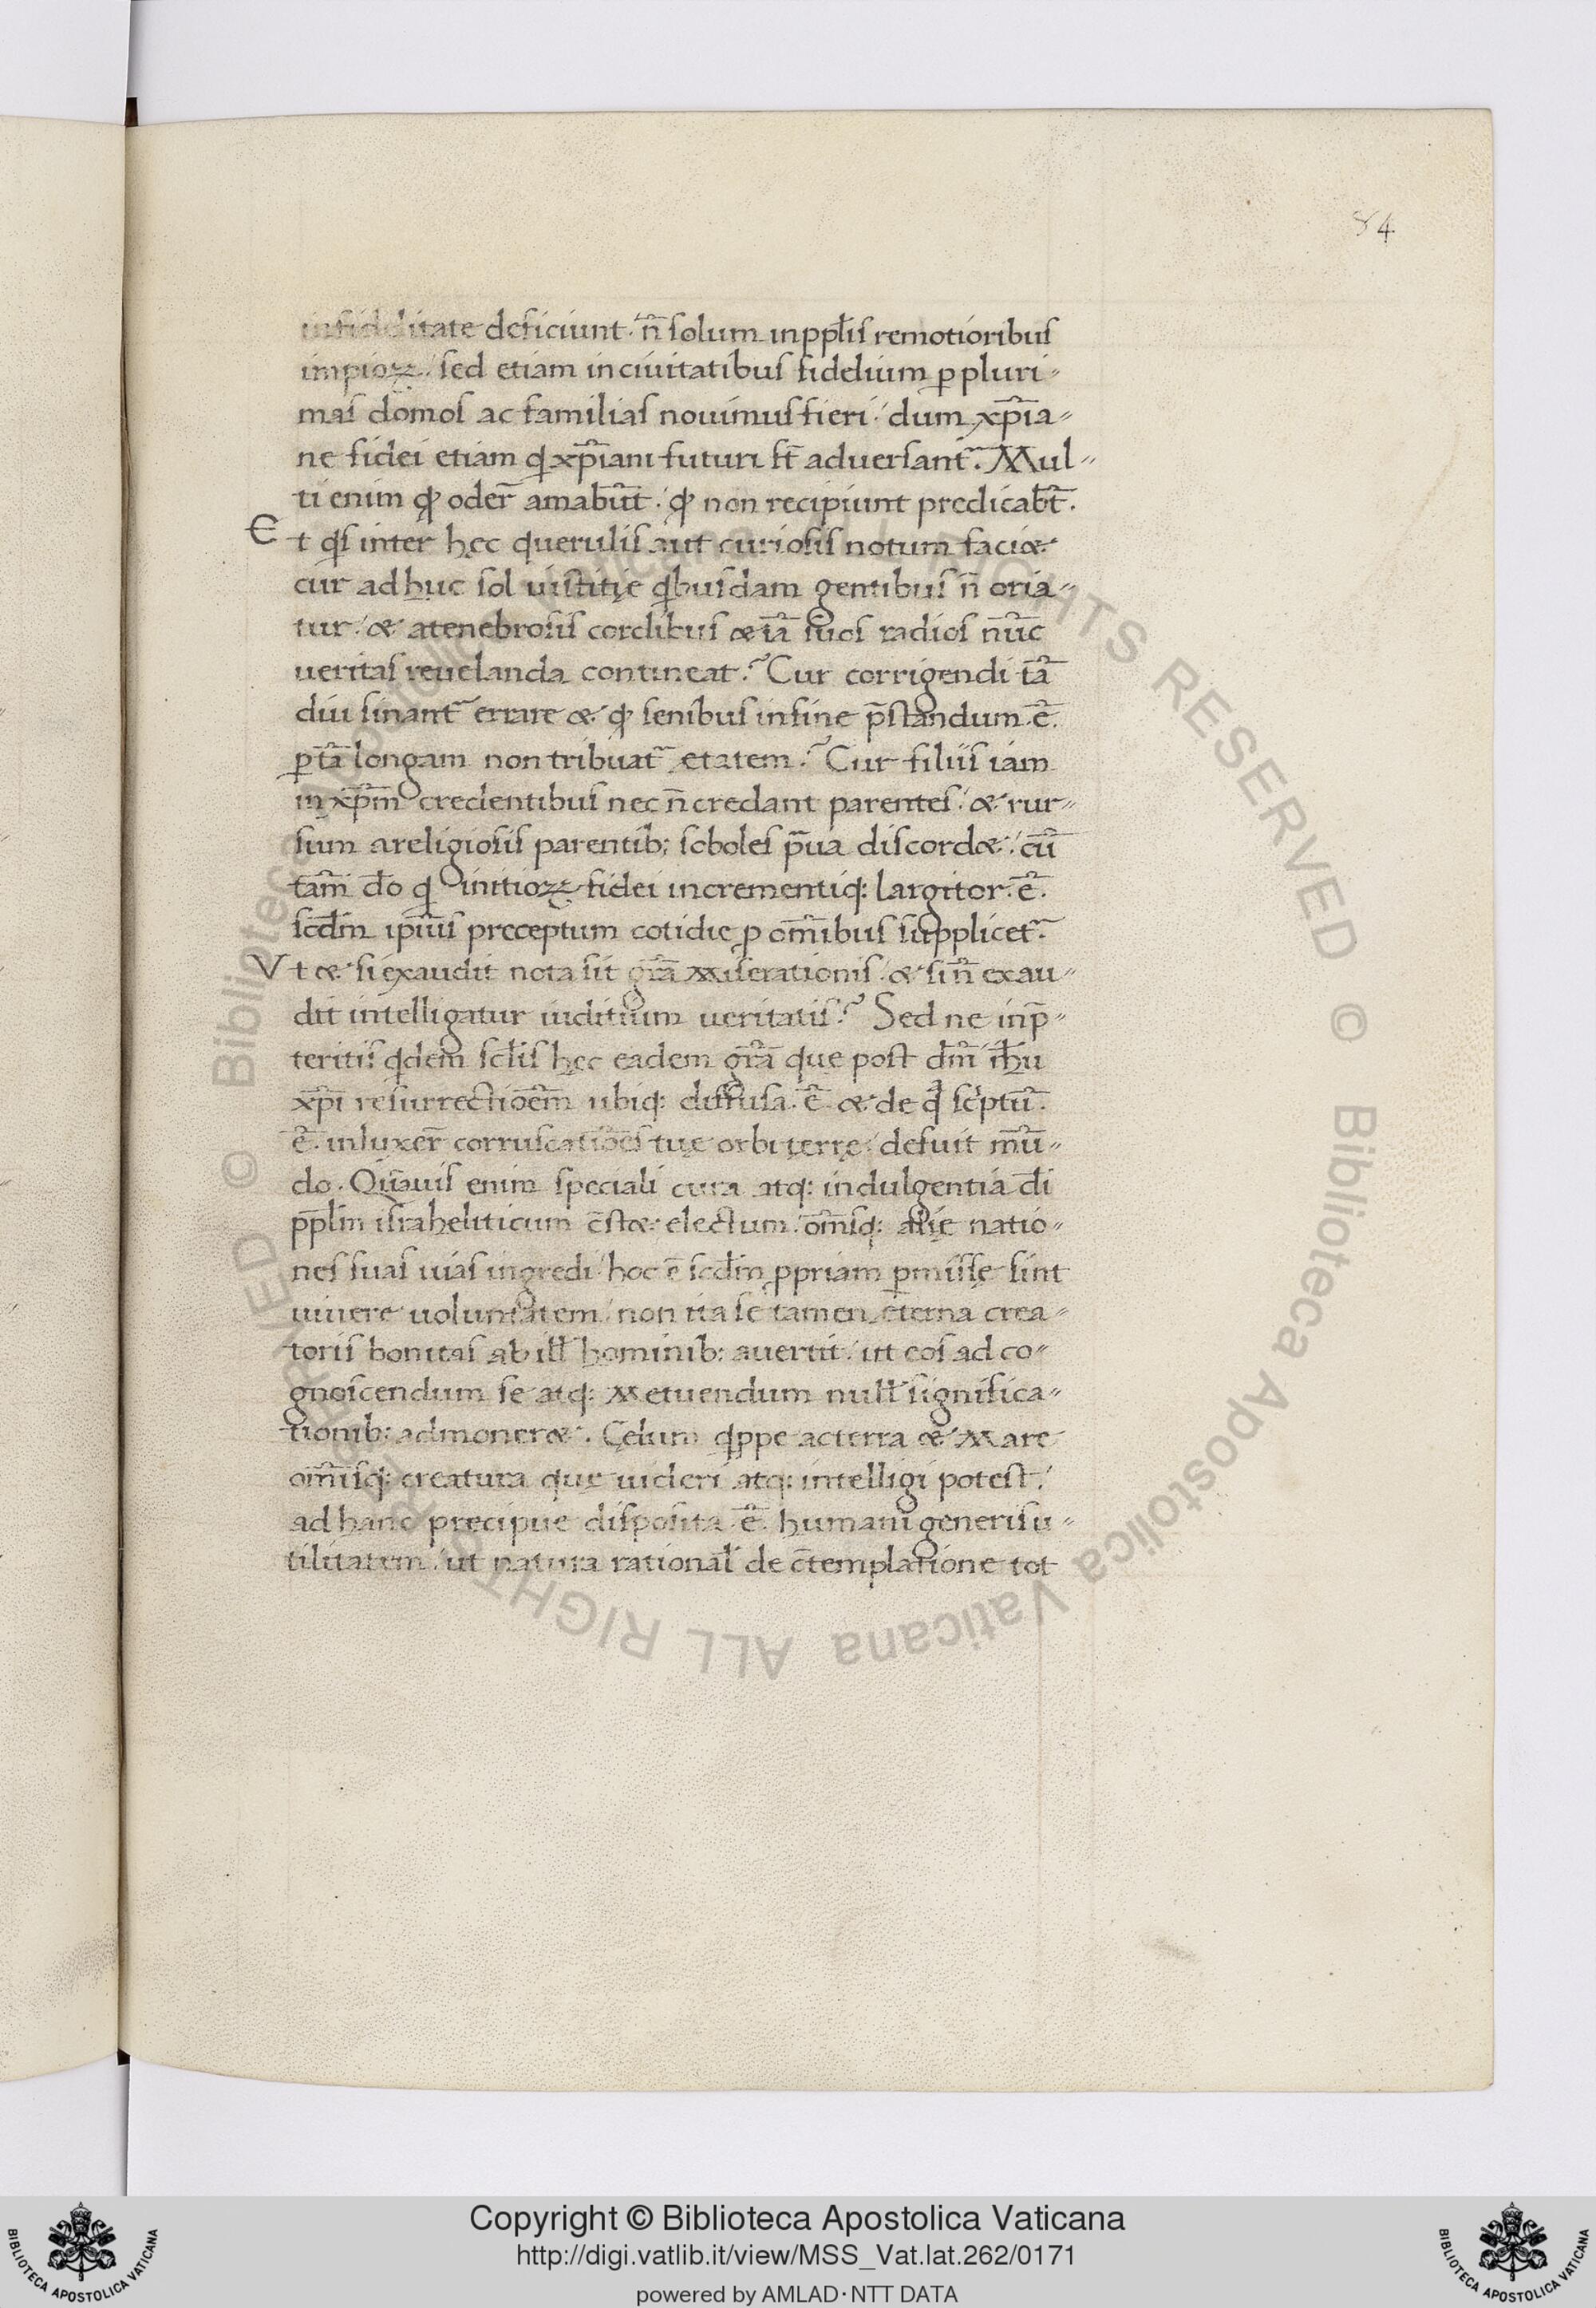 84
infidelitate deficiunt. n̄ solum in ppl̄is remotioribus
impioꝝ. sed etiam in ciuitatibus fidelium ꝑ pluri-
mas domos ac familias nouimus fieri. dum xp̄ia-
ne fidei etiam q̇ xp̄iani futuri st̄ aduersant᷑. Mul-
ti enim qđ oder̄ amabūt. qđ non recipiunt predicabt̄.
Et q̇s inter hęc querulis aut curiosis notum faciæ
cur ad huc sol iustitię q̇busdam gentibus n̄ oria-
tur. & a tenebrosis cordibus & iā suos radios nūc
ueritas reuelanda contineat? Cur corrigendi tā
diu sinant᷑ errare & qđ senibus in fine p̄standum ē.
ꝑ tā longam non tribuat᷑ etatem? Cur filiis iam
in xp̄m credentibus nec n̄ credant parentes. & rur-
sum a religiosis parentib; soboles p̄ua discordæ. cū
tam̄ do q̇ initioꝝ fidei incrementiq; largitor. ē.
scd̄m ipīus preceptum cotidie ꝑ om̄ibus supplicet᷑.
Vt & si exaudit nota sit gr̄a Miserationis. & si n̄ exau-
dit intelligatur iuditium ueritatis? Sed ne in p̄-
teritis q̇dem scl̄is hęc eadem gr̄a que post dm̄ ih̄u
xp̄i resurrectiōem ubiq; diffusa. ē & de q̄ scͥptū.
ē. inluxer̄ corruscatiōes tuę orbi terrę. defuit mū-
do. Quāuis enim speciali cura atq; indulgentia dī
ppl̄m israheliticum c̄stæ electum. om̄isq; alię natio-
nes suas uias ingredi. hoc ē scd̄m ꝓpriam ꝑmissę sint
uiuere uoluntatem. non ita se tamen ęterna crea-
toris bonitas ab ill̄ hominib; auertit. ut eos ad co-
gnoscendum se atq; Metuendum null̄ significa-
tionib; admoneræ. Cęlum q̇ppe ac terra & Mare
om̄isq; creatura quę uideri atq; intelligi potest.
ad hanc precipue disposita. ē. humani generis u-
tilitatem. ut natura rational̄ de c̄templatione tot
© Biblioteca Apostolica Vaticana ALL RIGHTS RESERVED
Copyright © Biblioteca Apostolica Vaticana
http://digi.vatlib.it/view/MSS_Vat.lat.262/0171
powered by AMLAD·NTT DATA
BIBLIOTECA APOSTOLICA VATICANA
BIBLIOTECA APOSTOLICA VATICANA